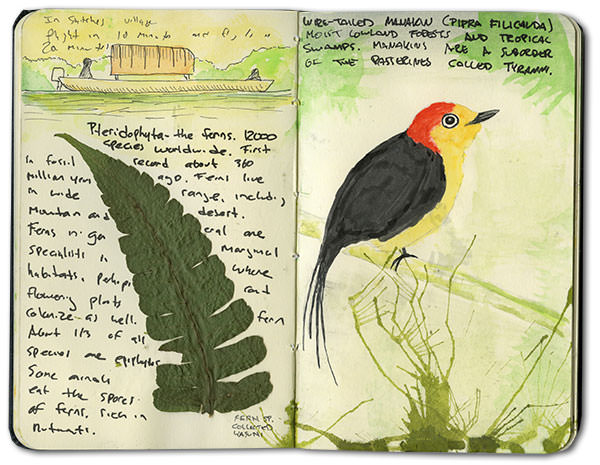 In village
flight in 10 minutes
20 minutes
Pteridophyta - the ferns. 12000
species worldwide. First
In fossil record about 360
million years ago. Ferns live
in wide range, including
Mountain and desert.
Ferns in general are
specialists in marginal
habitats, perhaps where
flowering plants cant
colonize as well. fern
About 1/3 of all
species are epiphytes
Some animals
eat the spores
of ferns, rich in
nutrients.
FERN SP.
COLLECTED
YASUNI
WIRE-TAILED MANAKIN (PIPRA FILICAUDA)
MOIST LOWLAND FORESTS AND TROPICAL
SWAMPS. MANAKINS ARE A SUBORDER
OF THE PASSERINES CALLED TYRANNI.